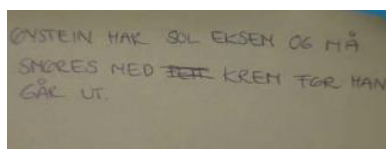 ØYSTEIN HAR SOL EKSEM OG MÅ
SMØRES MED KREM FØR HAN
GÅR UT.